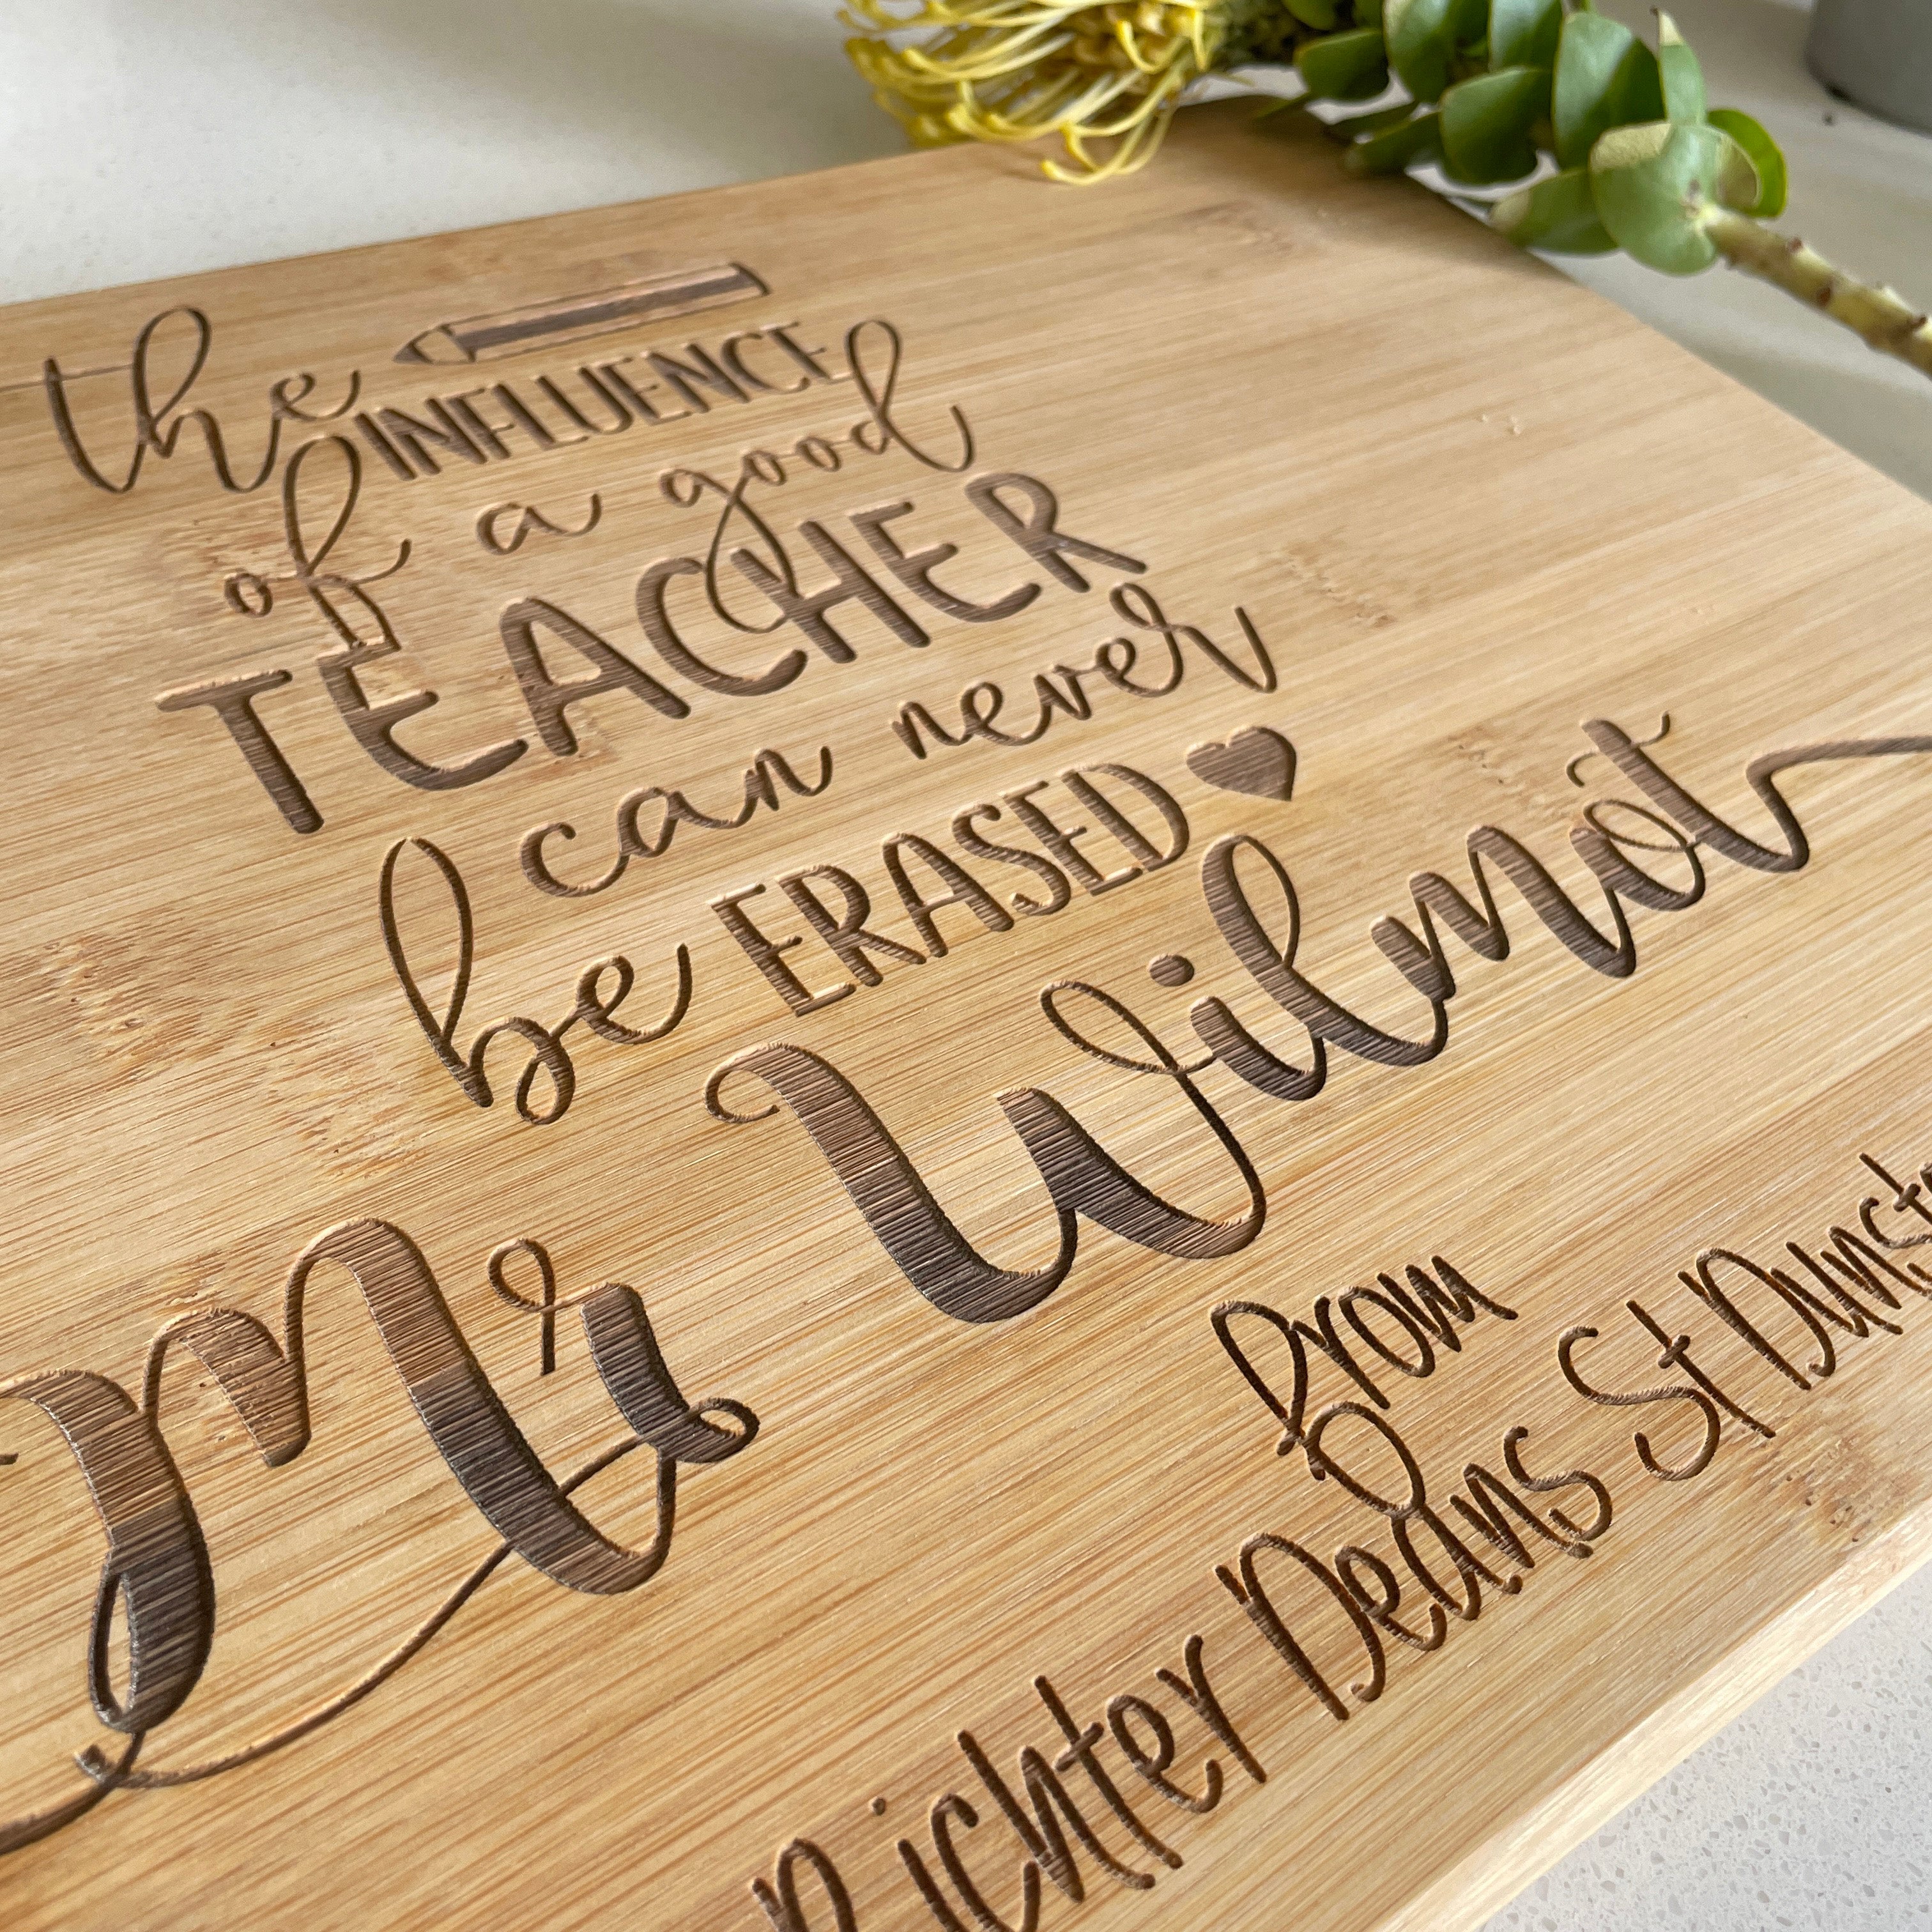 the INFLUENCE
of a good
TEACHER
can never
be ERASED
Mr Wilmot
from
Richter Deans St Dunst